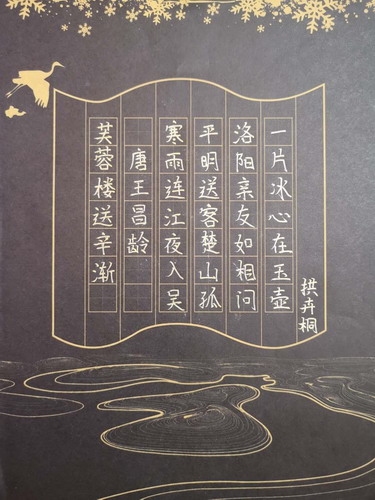 芙蓉楼送辛渐
唐王昌龄
寒雨连江夜入吴
平明送客楚山孤
洛阳亲友如相问
一片冰心在玉壶
拱卉桐